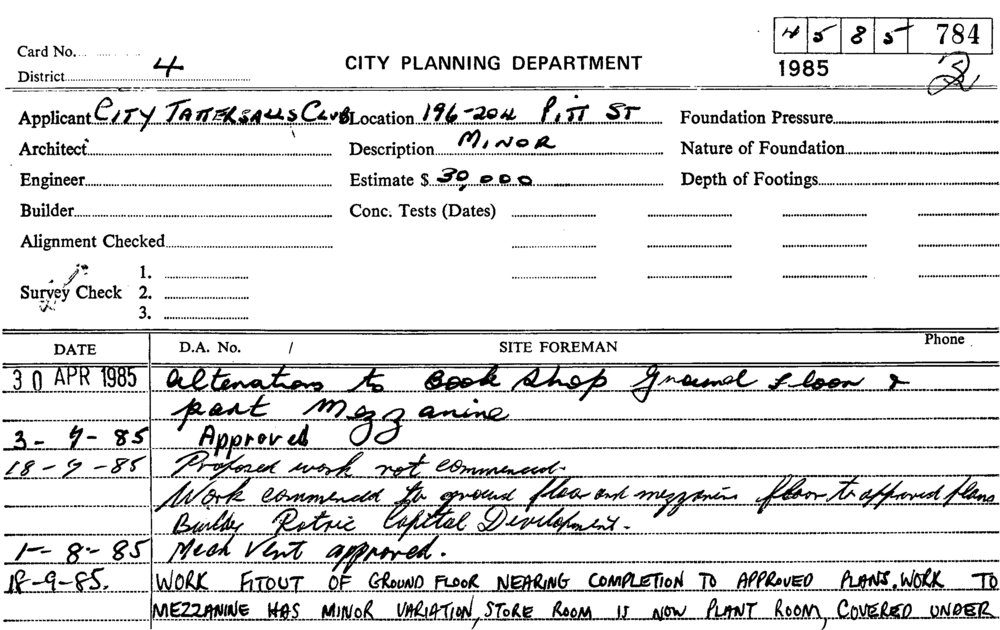 4585 784
Card No. 1985 2
District 4 CITY PLANNING DEPARTMENT
Applicant CITY TATTERSALLS CLUB Location 196-204 PITT ST Foundation Pressure
Architect Description MINOR Nature of Foundation
Engineer Estimate $ 30,000 Depth of Footings
Builder Conc. Tests (Dates)
Alignment Checked
1.
Survey Check 2.
3.
DATE D.A. No. / SITE FOREMAN Phone
30 APR 1985 Alterations to Book Shop Ground Floor &
part Mezzanine
3-7-85 Approved
18-7-85 Proposed work not commenced.
Work commenced to ground floor and mezzanine floor to approved plans
Capital Development.
1-8-85 Mech Vent approved.
18-9-85. WORK FITOUT OF GROUND FLOOR NEARING COMPLETION TO APPROVED PLANS. WORK TO
MEZZANINE HAS MINOR VARIATION, STORE ROOM IS NOW PLANT ROOM, COVERED UNDER